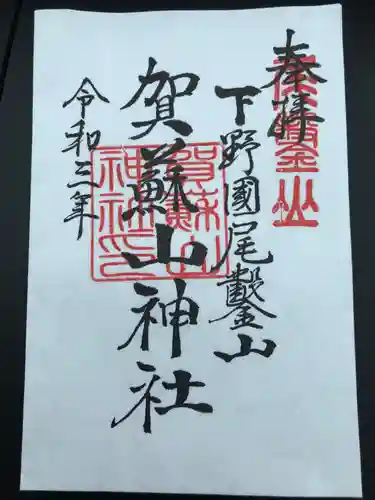 奉拝
下野國尾鑿山
賀蘇山神社
令和三年
賀蘇山
神社印